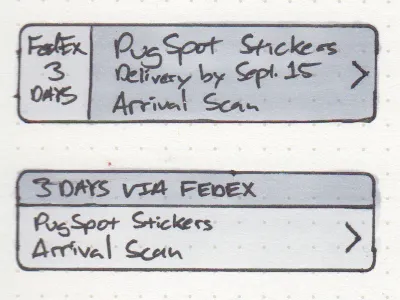 FedEx
3
DAYS
PugSpot Stickers
Delivery by Sept. 15
Arrival Scan
3 DAYS VIA FEDEX
PugSpot Stickers
Arrival Scan